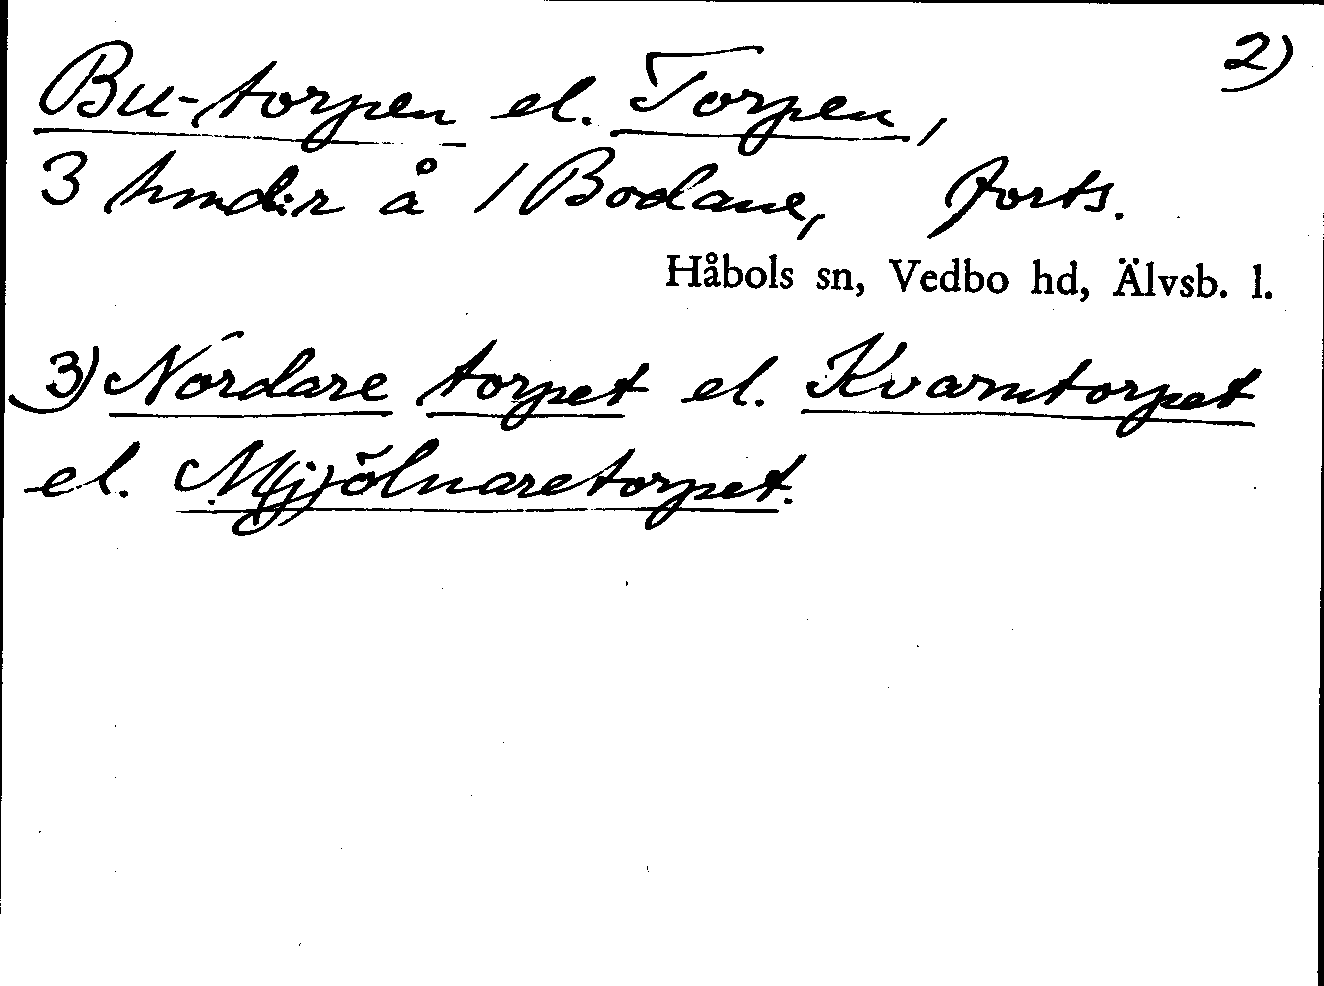 2)
Bu-torpen el. Torpen,
3 hmd:r å 1 Bodane, forts.
Håbols sn, Vedbo hd, Älvsb. l.
3) Nordare torpet el. Kvarntorpet
el. M(j)ölnaretorpet.